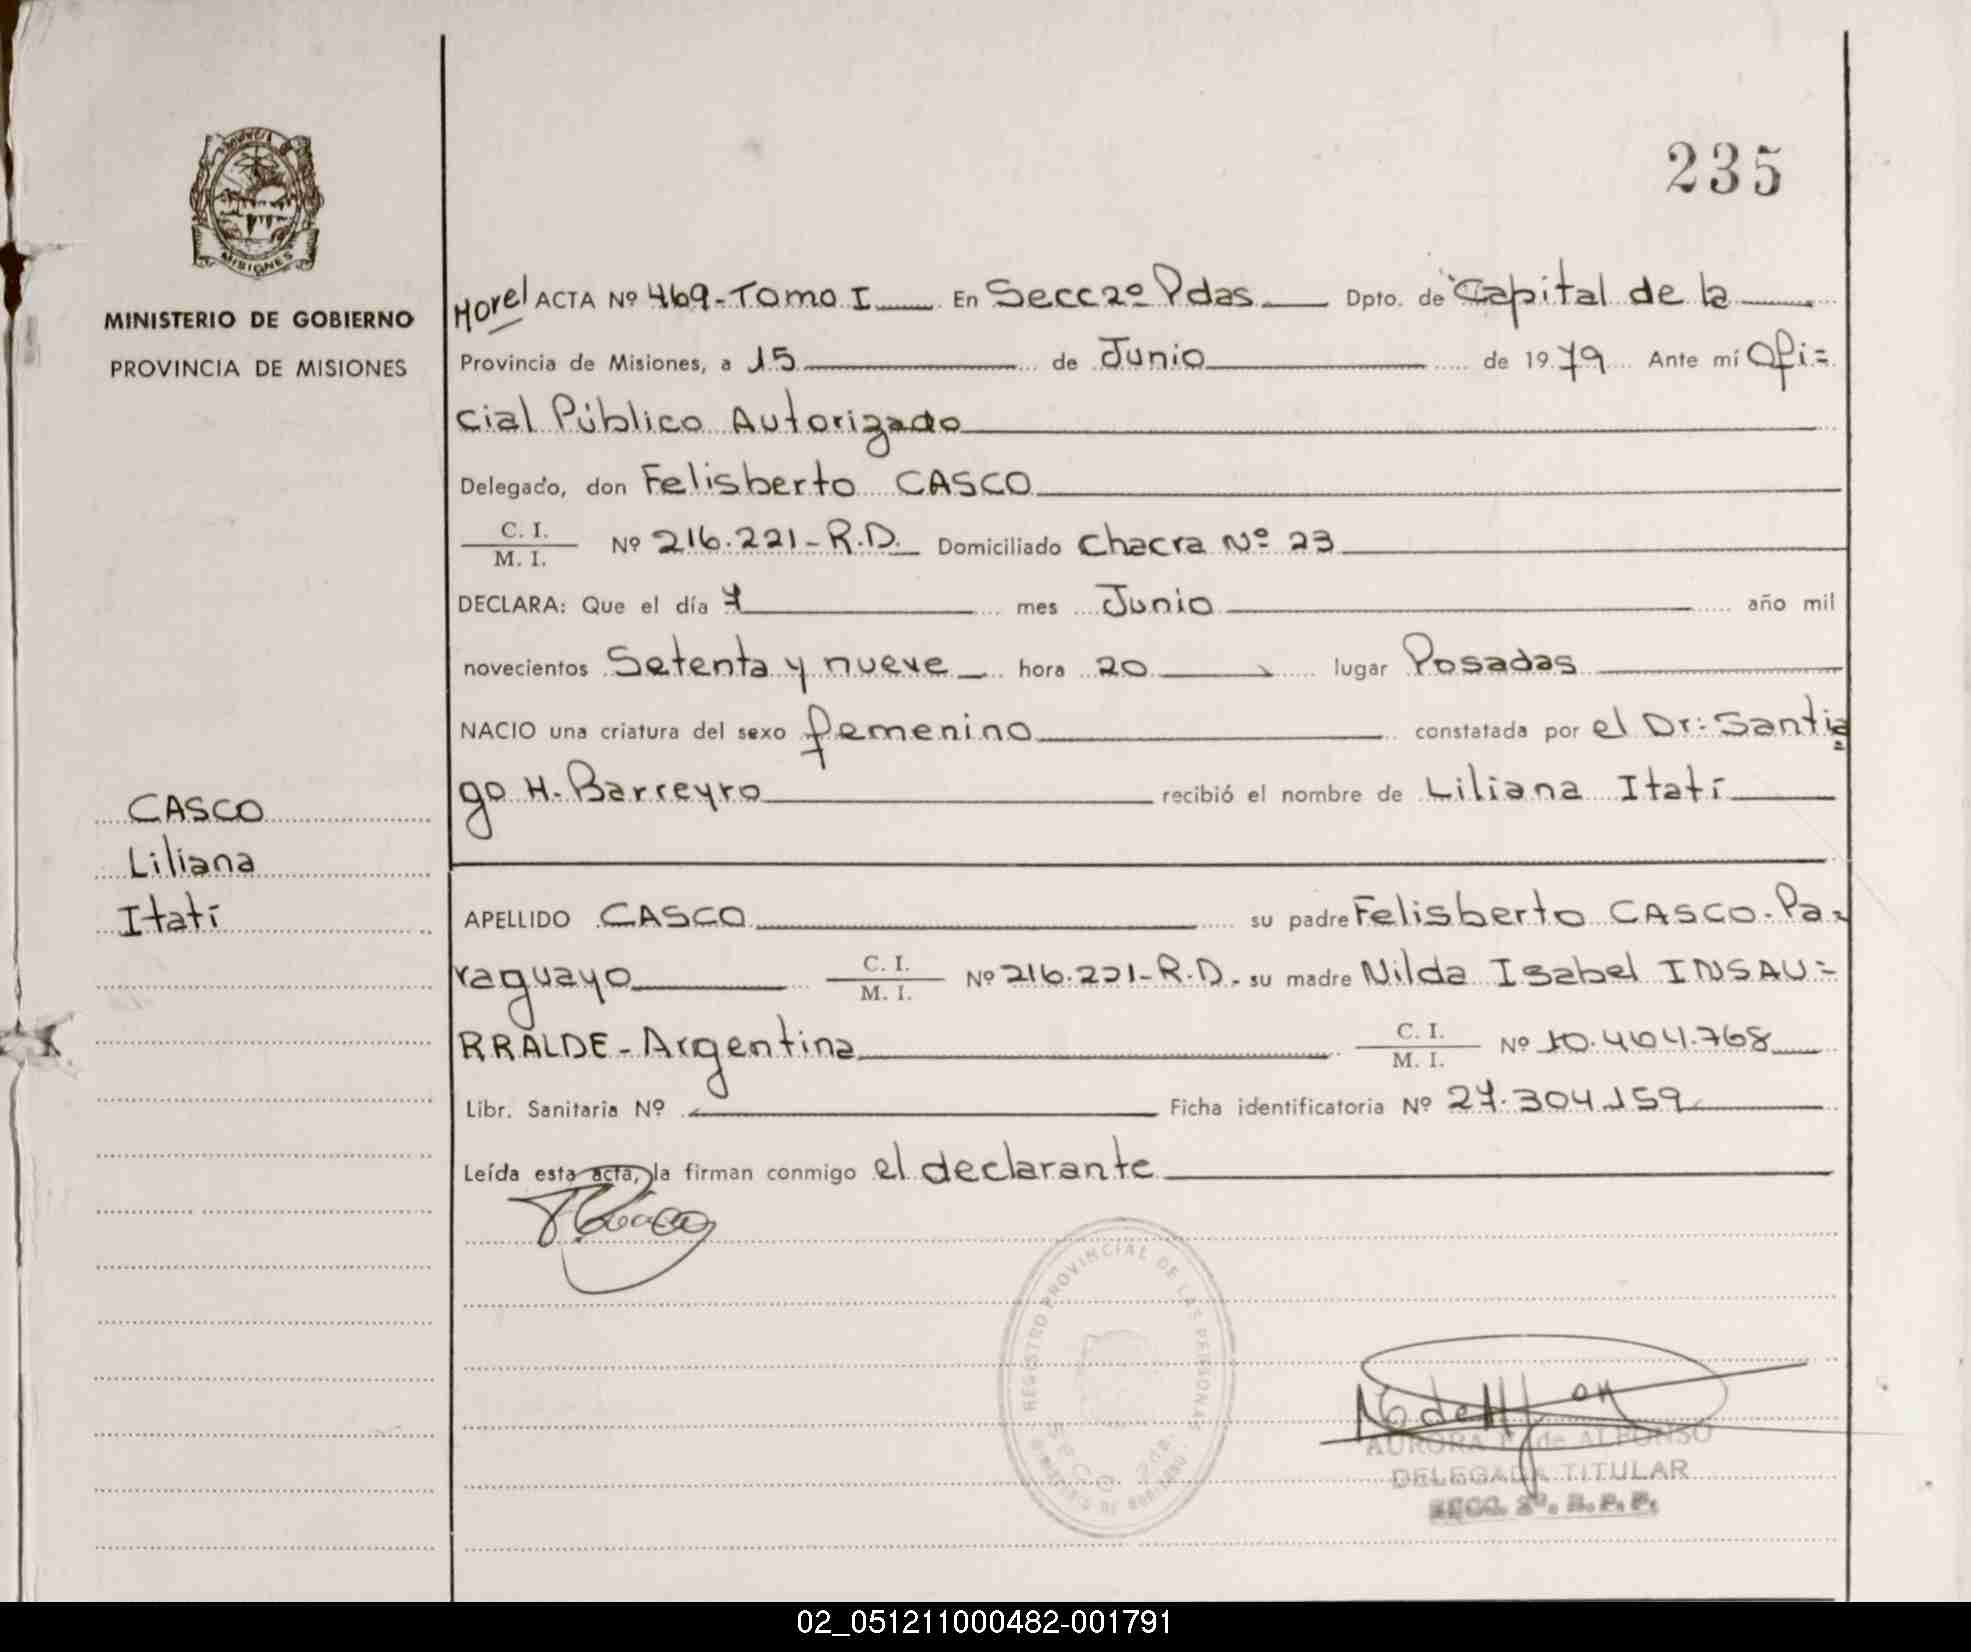 235
PROVINCIA
MISIONES
MINISTERIO DE GOBIERNO
PROVINCIA DE MISIONES
CASCO
Liliana
Itatí
Horel ACTA Nº 469-Tomo I En Secc 2º Pdas Dpto. de Capital de la
Provincia de Misiones, a 15 de Junio de 1979 Ante mí Ofi=
cial Público Autorizado
Delegado, don Felisberto CASCO
C. I.
M. I. Nº 216.221-R.D. Domiciliado Chacra Nº 23
DECLARA: Que el día 7 mes Junio año mil
novecientos Setenta y nueve hora 20 lugar Posadas
NACIO una criatura del sexo femenino constatada por el Dr: Santia
go H. Barreyro recibió el nombre de Liliana Itatí
APELLIDO CASCO su padre Felisberto CASCO-Pa=
raguayo C. I.
M. I. Nº 216.221-R.D. su madre Nilda Isabel INSAU=
RRALDE-Argentina C. I.
M. I. Nº 10.404.768
Libr. Sanitaria Nº Ficha identificatoria Nº 27.304.159
Leída esta acta, la firman conmigo el declarante
REGISTRO PROVINCIAL DE LAS PERSONAS
MINISTERIO DE GOBIERNO
SECC 2da.
AURORA de ALFONSO
DELEGADA TITULAR
SECC. 2º. R. P. P.
02_051211000482-001791